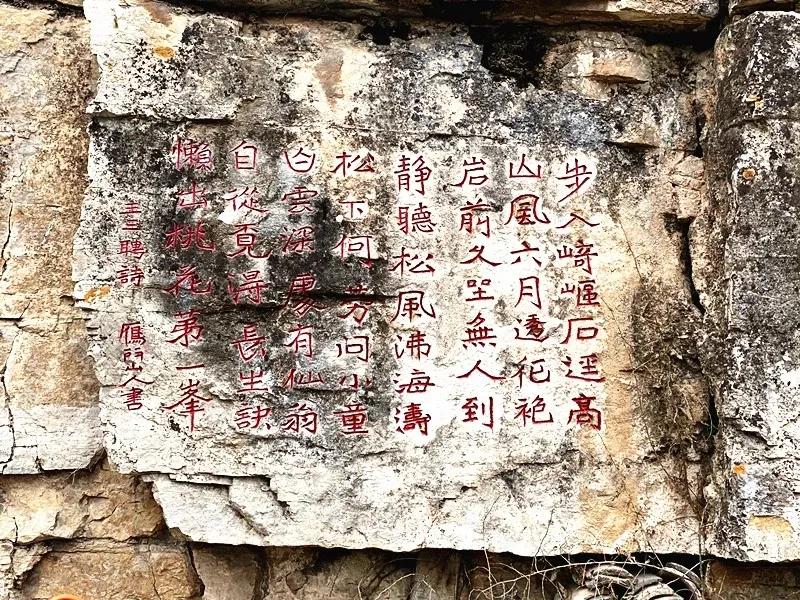 步入崎嶇石逕高
山風六月透袍
岩前久坐無人到
靜聽松風沸海濤
松下何勞問小童
白雲深處有仙翁
自從覓得長生訣
懶出桃花第一峯
王三聘詩 雁門山人書